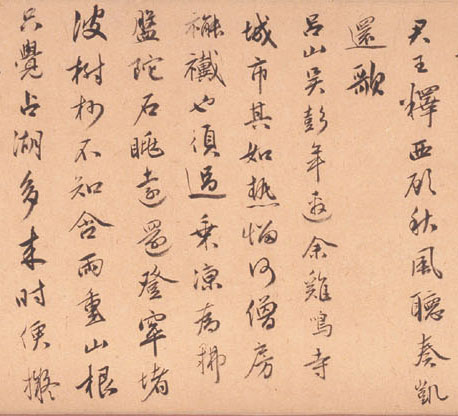 君王釋西顧秋風聽奏凱
還歌
呂山吳彭年邀余雞鳴寺
城市其如熱惱何僧房
褦襶也須過乘凉為掃
盤陀石眺遠還登窣堵
波樹杪不知含雨重山根
只覺占湖多来时便擬